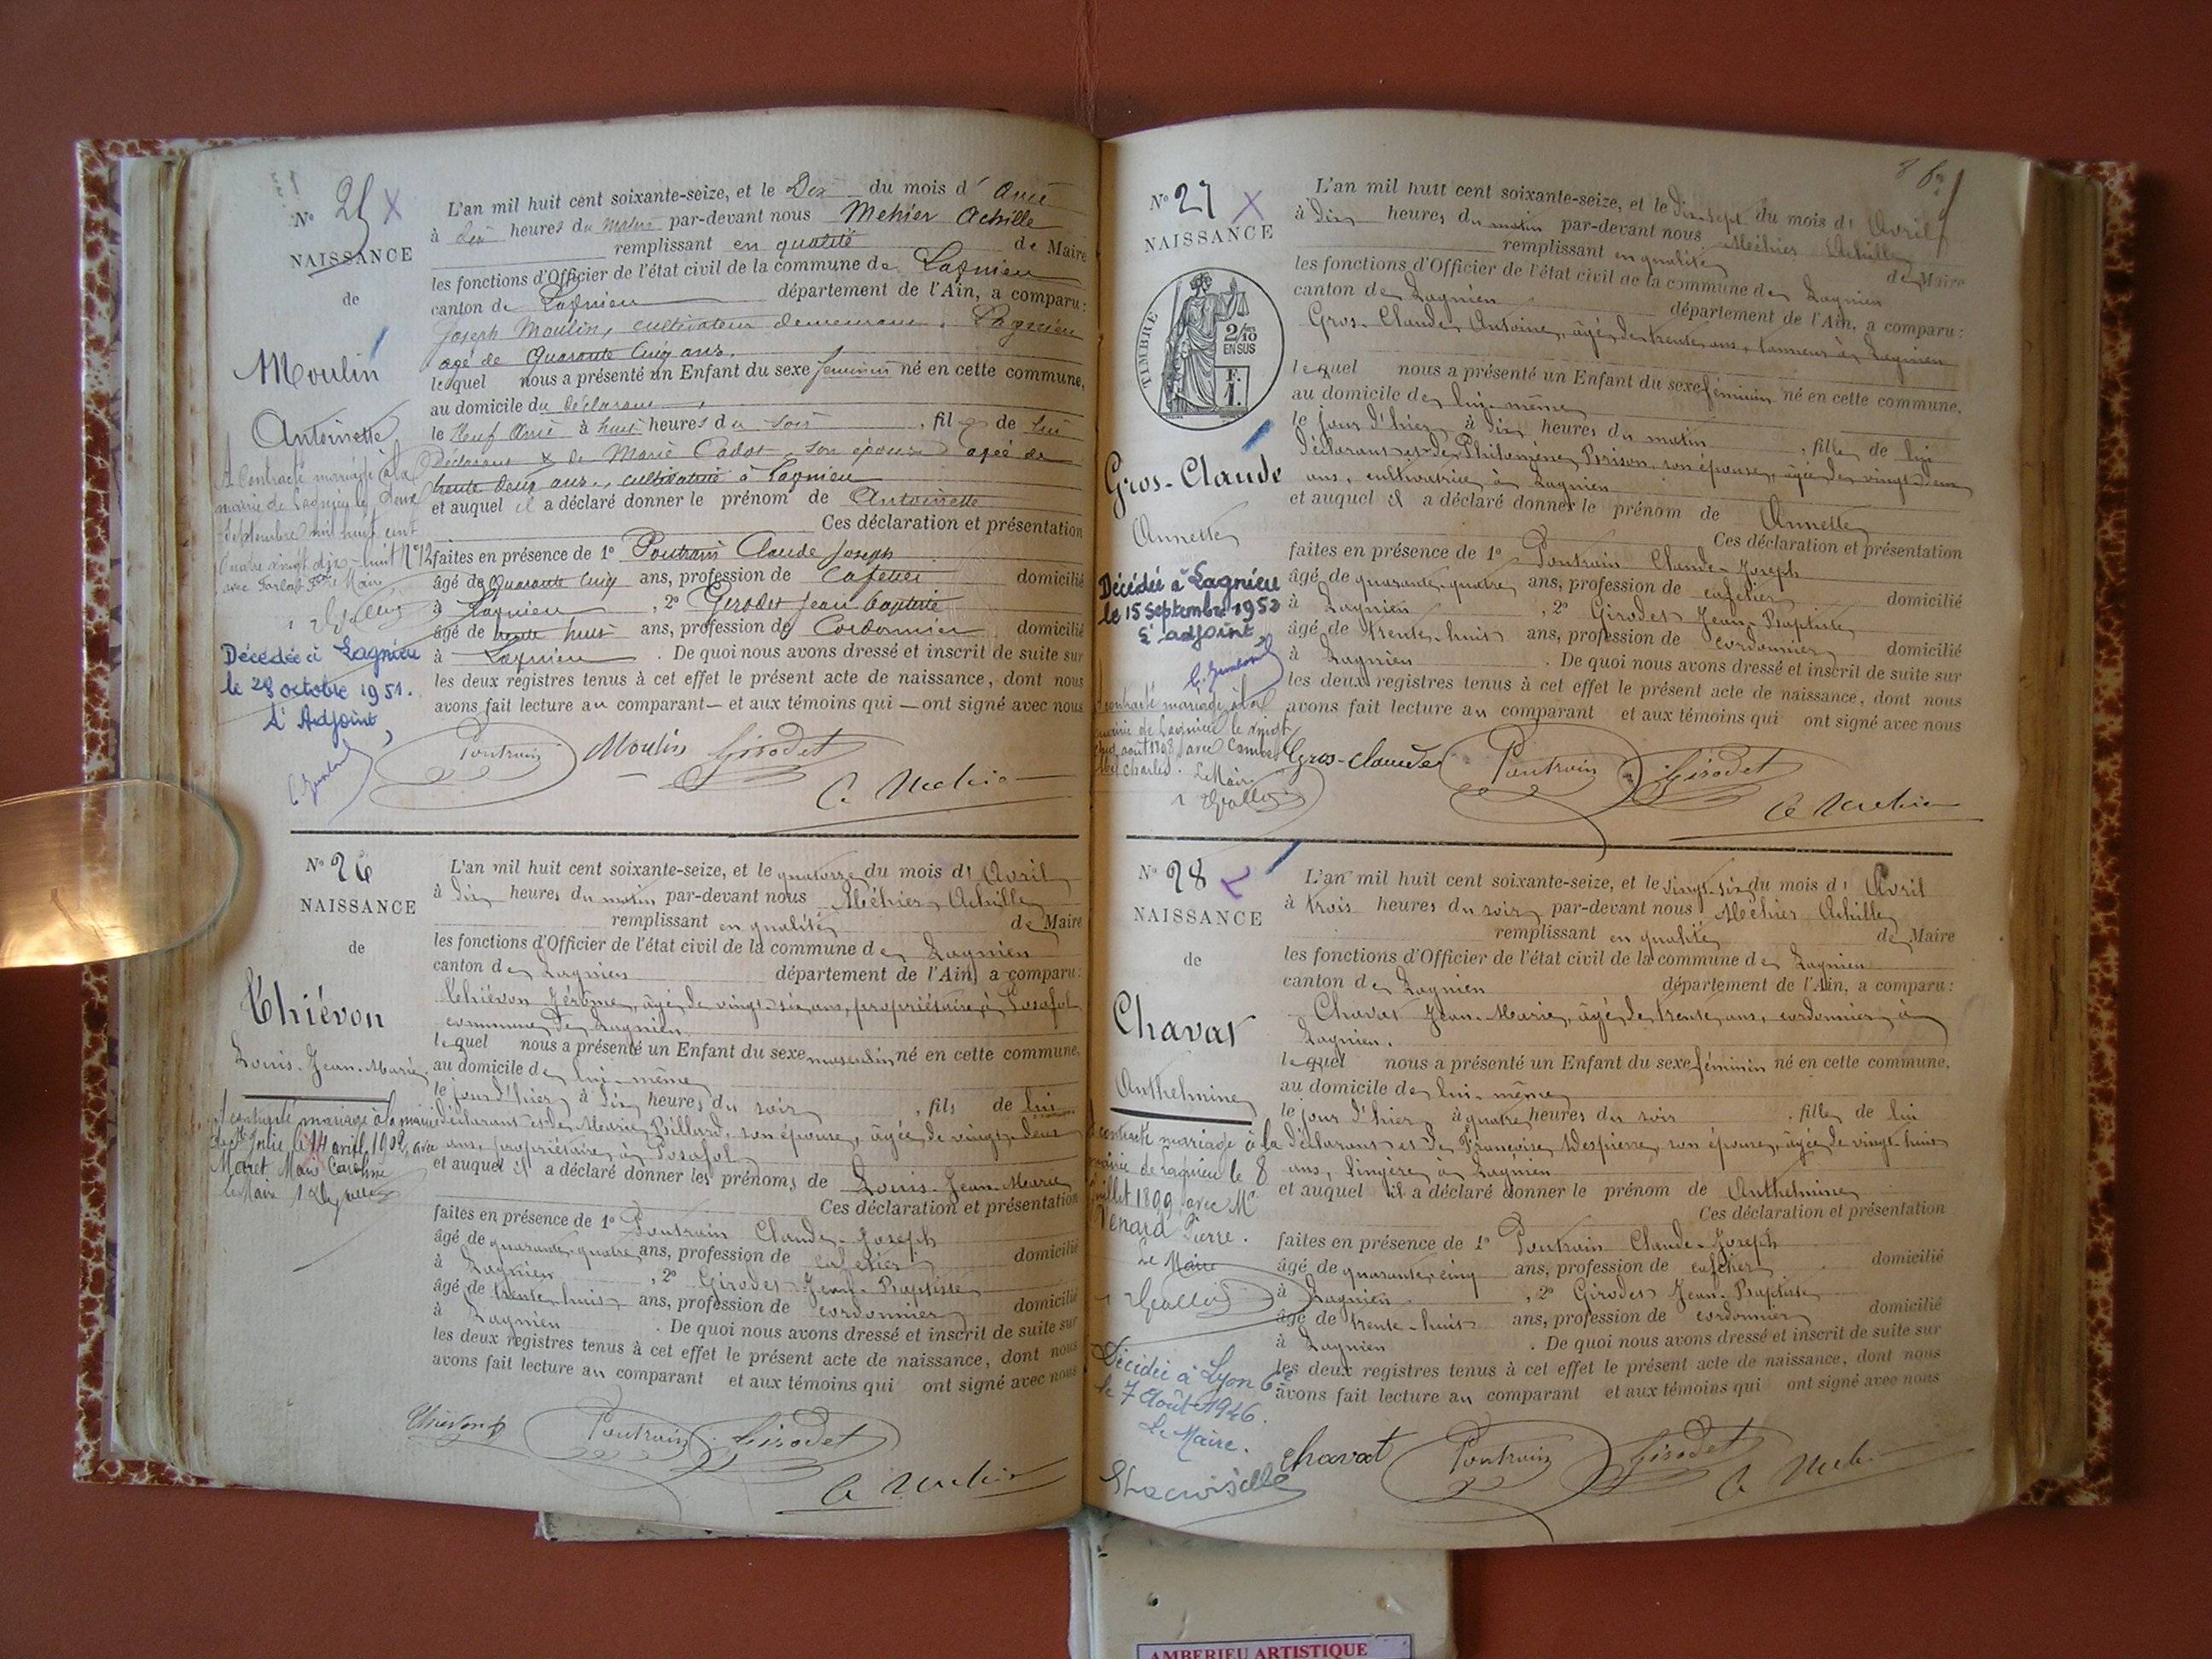 N° 25 X
NAISSANCE
de
Moulin
Antoinette
A Contracté mariage à la
mairie de Lagnieu le deux
Septembre mil huit cent
quatre vingt dix-huit N° 12
avec
Décédée à Lagnieu
le 28 octobre 1951.
L'Adjoint,
L'an mil huit cent soixante-seize, et le Dix du mois d' Avril
à dix heures du matin par-devant nous Mehier Achille
remplissant en qualité de Maire
les fonctions d'Officier de l'état civil de la commune de Lagnieu
canton de Lagnieu département de l'Ain, a comparu:
Joseph Moulin, cultivateur demeurant à Lagnieu
agé de Quarante Cinq ans.
lequel nous a présenté un Enfant du sexe feminin né en cette commune,
au domicile du Déclarant
le Neuf Avril à huit heures du soir, fille de lui
Déclarant & de Marie Cadot son épouse agée de
trente deux ans, cultivatrice à Lagnieu
et auquel il a déclaré donner le prénom de Antoinette
Ces déclaration et présentation
faites en présence de 1° Poutrain Claude Joseph
âgé de Quarante Cinq ans, profession de Cafetier domicilié
à Lagnieu, 2° Girodet Jean Baptiste
âgé de trente huit ans, profession de Cordonnier domicilié
à Lagnieu. De quoi nous avons dressé et inscrit de suite sur
les deux registres tenus à cet effet le présent acte de naissance, dont nous
avons fait lecture au comparant — et aux témoins qui — ont signé avec nous
Poutrain Moulin Girodet
A. Mehier
N° 26
NAISSANCE
de
Thiévon
Louis-Jean-Marie
A contracté mariage à la mairie
de Ste Julie le 14 avril 1902, avec
Moret Marie Caroline
Le Maire
L'an mil huit cent soixante-seize, et le quatorze du mois d' Avril
à dix heures du matin par-devant nous Méhier Achille
remplissant en qualité de Maire
les fonctions d'Officier de l'état civil de la commune de Lagnieu
canton de Lagnieu département de l'Ain, a comparu:
Thiévon Jérôme, âgé de vingt-six ans, propriétaire à Posafol
commune de Lagnieu.
lequel nous a présenté un Enfant du sexe masculin né en cette commune,
au domicile de lui-même
le jour d'hier à dix heures du soir, fils de lui
déclarant et de Marie Billard, son épouse, âgée de vingt-deux
ans, propriétaire à Posafol
et auquel il a déclaré donner les prénoms de Louis-Jean-Marie
Ces déclaration et présentation
faites en présence de 1° Poutrain Claude-Joseph
âgé de quarante-quatre ans, profession de cafetier domicilié
à Lagnieu, 2° Girodet Jean-Baptiste
âgé de trente-huit ans, profession de cordonnier domicilié
à Lagnieu. De quoi nous avons dressé et inscrit de suite sur
les deux registres tenus à cet effet le présent acte de naissance, dont nous
avons fait lecture au comparant et aux témoins qui ont signé avec nous
Thiévon Poutrain Girodet
A. Mehier
N° 27 X
NAISSANCE
TIMBRE
2/10
EN SUS
F.
1.
Gros-Claude
Annette
Décédée à Lagnieu
le 15 Septembre 1952
L'adjoint,
A contracté mariage à la
mairie de Lagnieu le vingt
août 1898 avec
Charles.
Le Maire
L'an mil huit cent soixante-seize, et le dix-sept du mois d' Avril
à dix heures du matin par-devant nous Méhier Achille
remplissant en qualité de Maire
les fonctions d'Officier de l'état civil de la commune de Lagnieu
canton de Lagnieu département de l'Ain, a comparu:
Gros-Claude Antoine, âgé de trente ans, tanneur à Lagnieu
lequel nous a présenté un Enfant du sexe féminin né en cette commune,
au domicile de lui-même
le jour d'hier à dix heures du matin, fille de lui
déclarant et de Philomène Brison, son épouse, âgée de vingt-deux
ans, cultivatrice à Lagnieu
et auquel il a déclaré donner le prénom de Annette
Ces déclaration et présentation
faites en présence de 1° Poutrain Claude-Joseph
âgé de quarante-quatre ans, profession de cafetier domicilié
à Lagnieu, 2° Girodet Jean-Baptiste
âgé de trente-huit ans, profession de cordonnier domicilié
à Lagnieu. De quoi nous avons dressé et inscrit de suite sur
les deux registres tenus à cet effet le présent acte de naissance, dont nous
avons fait lecture au comparant et aux témoins qui ont signé avec nous
Gros-Claude Poutrain Girodet
A. Mehier
N° 28
NAISSANCE
de
Chavat
Anthelmine
A contracté mariage à la
mairie de Lagnieu le 8
juillet 1899 avec Mr
Venard Pierre.
Le Maire
Décédée à Lyon 6e
le 7 Août 1946.
Le Maire.
L'an mil huit cent soixante-seize, et le vingt-six du mois d' Avril
à trois heures du soir par-devant nous Méhier Achille
remplissant en qualité de Maire
les fonctions d'Officier de l'état civil de la commune de Lagnieu
canton de Lagnieu département de l'Ain, a comparu:
Chavat Jean-Marie, âgé de trente ans, cordonnier à
Lagnieu.
lequel nous a présenté un Enfant du sexe féminin né en cette commune,
au domicile de lui-même
le jour d'hier à quatre heures du soir, fille de lui
déclarant et de Françoise Despierre, son épouse, âgée de vingt-huit
ans, lingère à Lagnieu
et auquel il a déclaré donner le prénom de Anthelmine
Ces déclaration et présentation
faites en présence de 1° Poutrain Claude-Joseph
âgé de quarante-cinq ans, profession de cafetier domicilié
à Lagnieu, 2° Girodet Jean-Baptiste
âgé de trente-huit ans, profession de cordonnier domicilié
à Lagnieu. De quoi nous avons dressé et inscrit de suite sur
les deux registres tenus à cet effet le présent acte de naissance, dont nous
avons fait lecture au comparant et aux témoins qui ont signé avec nous
Chavat Poutrain Girodet
A. Mehier
AMBERIEU ARTISTIQUE